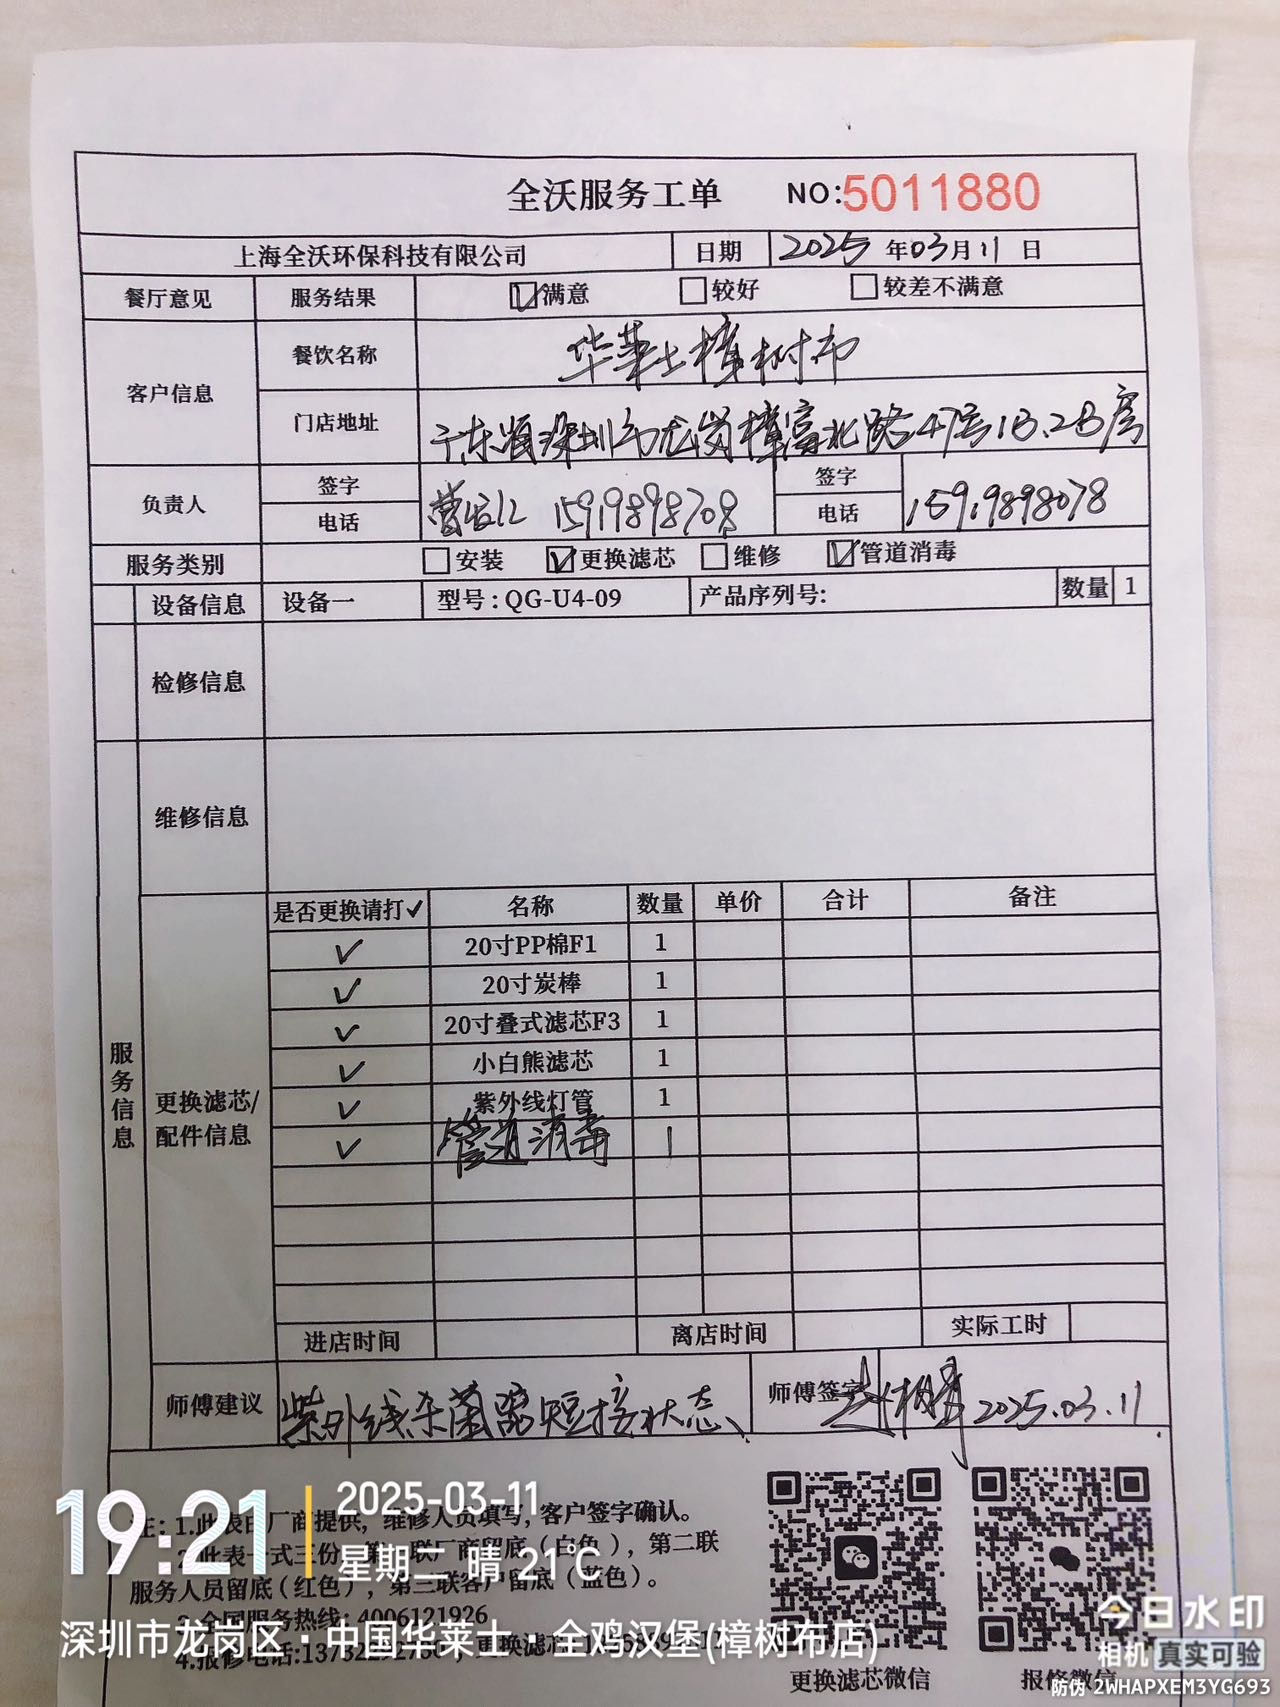 全沃服务工单 NO:5011880
上海全沃环保科技有限公司 日期 2025年03月11日
餐厅意见 服务结果 ☑满意 □较好 □较差不满意
客户信息 餐饮名称 华莱士樟树布
门店地址 广东省深圳市龙岗樟富北路47号1B.2B房
负责人 签字 电话 15919898708 签字 电话 15919898078
服务类别 □安装 ☑更换滤芯 □维修 ☑管道消毒
设备信息 设备一 型号:QG-U4-09 产品序列号: 数量 1
检修信息
维修信息
服务信息
更换滤芯/配件信息
是否更换请打✓ 名称 数量 单价 合计 备注
✓ 20寸PP棉F1 1
✓ 20寸炭棒 1
✓ 20寸叠式滤芯F3 1
✓ 小白熊滤芯 1
✓ 紫外线灯管 1
✓ 管道消毒 1
进店时间 离店时间 实际工时
师傅建议 紫外线杀菌器短接状态、 师傅签字 2025.03.11
注:1.此表由厂商提供,维修人员填写,客户签字确认。
2.此表一式三份,第一联厂商留底(白色),第二联
服务人员留底(红色),第三联客户留底(蓝色)。
3.全国服务热线:4006121926
4.报修电话: 更换滤芯
更换滤芯微信 报修微信
19:21
2025-03-11
星期二 晴 21℃
深圳市龙岗区·中国华莱士·全鸡汉堡(樟树布店)
今日水印
相机 真实可验
防伪 2WHAPXEM3YG693